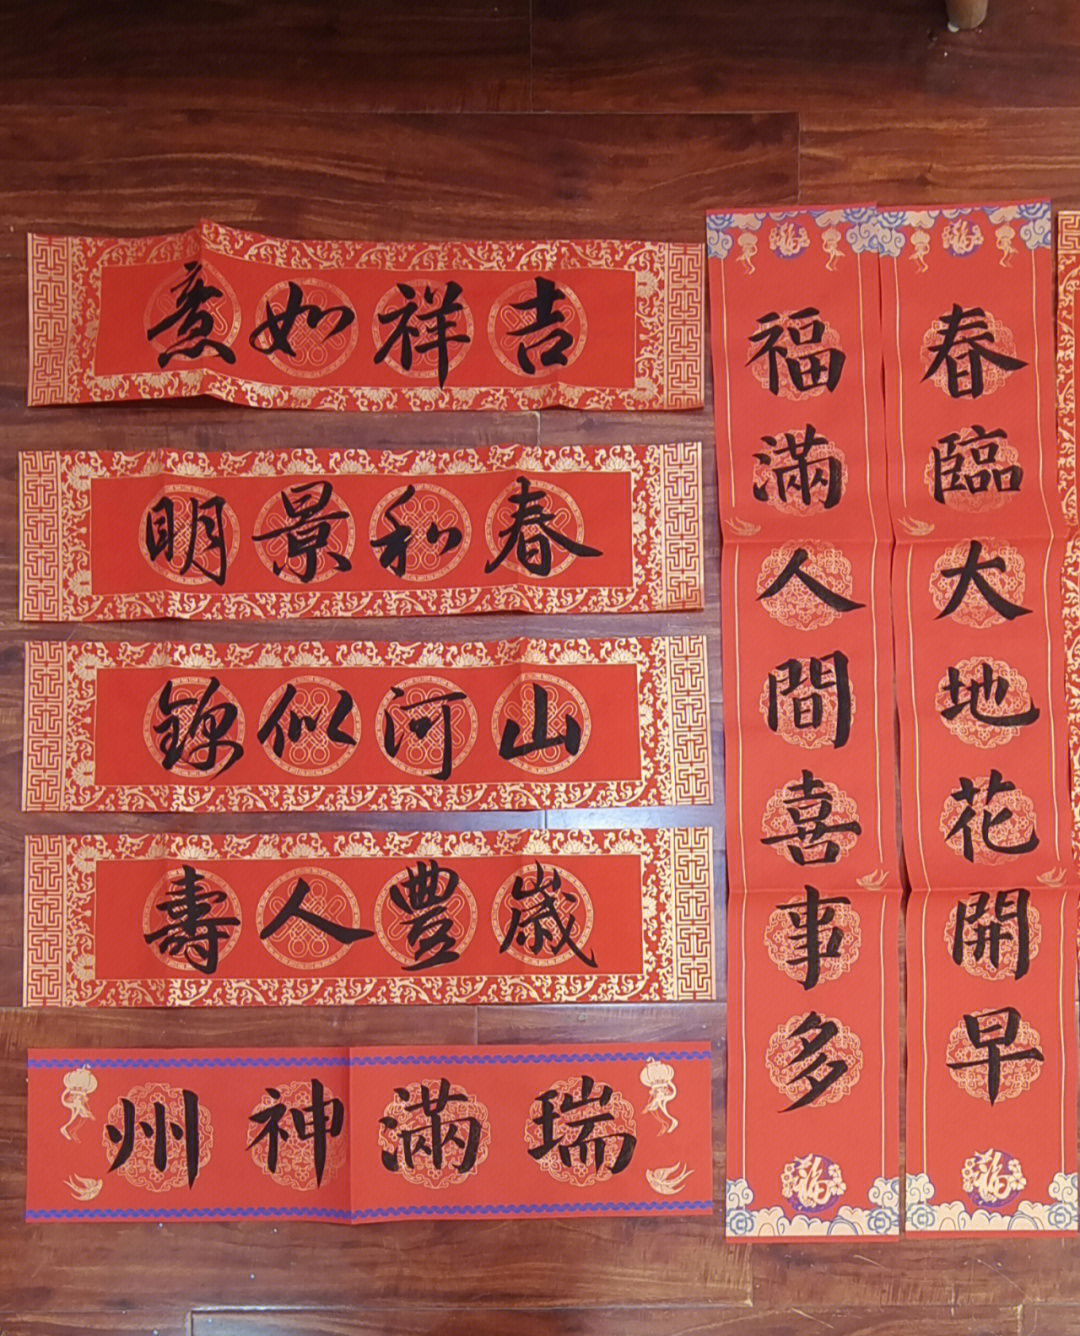 吉祥如意
春和景明
山河似錦
歲豐人壽
瑞滿神州
福
春臨大地花開早
福
福
福滿人間喜事多
福